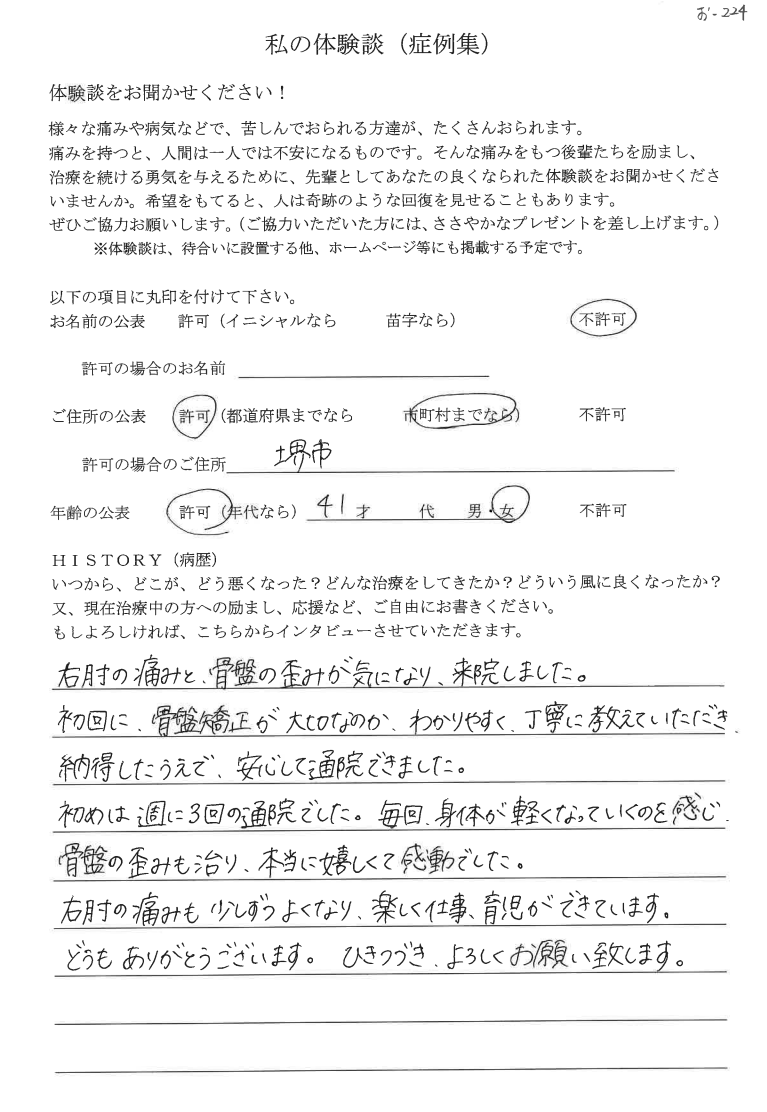 お-224
私の体験談（症例集）
体験談をお聞かせください！
様々な痛みや病気などで、苦しんでおられる方達が、たくさんおられます。
痛みを持つと、人間は一人では不安になるものです。そんな痛みをもつ後輩たちを励まし、
治療を続ける勇気を与えるために、先輩としてあなたの良くなられた体験談をお聞かせくださ
いませんか。希望をもてると、人は奇跡のような回復を見せることもあります。
ぜひご協力お願いします。（ご協力いただいた方には、ささやかなプレゼントを差し上げます。）
※体験談は、待合いに設置する他、ホームページ等にも掲載する予定です。
以下の項目に丸印を付けて下さい。
お名前の公表　許可（イニシャルなら　苗字なら）　不許可
許可の場合のお名前
ご住所の公表　許可（都道府県までなら　市町村までなら）　不許可
許可の場合のご住所　堺市
年齢の公表　許可（年代なら）　41才　代　男・女　不許可
ＨＩＳＴＯＲＹ（病歴）
いつから、どこが、どう悪くなった？どんな治療をしてきたか？どういう風に良くなったか？
又、現在治療中の方への励まし、応援など、ご自由にお書きください。
もしよろしければ、こちらからインタビューさせていただきます。
右肘の痛みと、骨盤の歪みが気になり、来院しました。
初回に、骨盤矯正が大切なのか、わかりやすく、丁寧に教えていただき、
納得したうえで、安心して通院できました。
初めは週に3回の通院でした。毎回、身体が軽くなっていくのを感じ、
骨盤の歪みも治り、本当に嬉しくて感動でした。
右肘の痛みも少しずつよくなり、楽しく仕事、育児ができています。
どうもありがとうございます。ひきつづき、よろしくお願い致します。